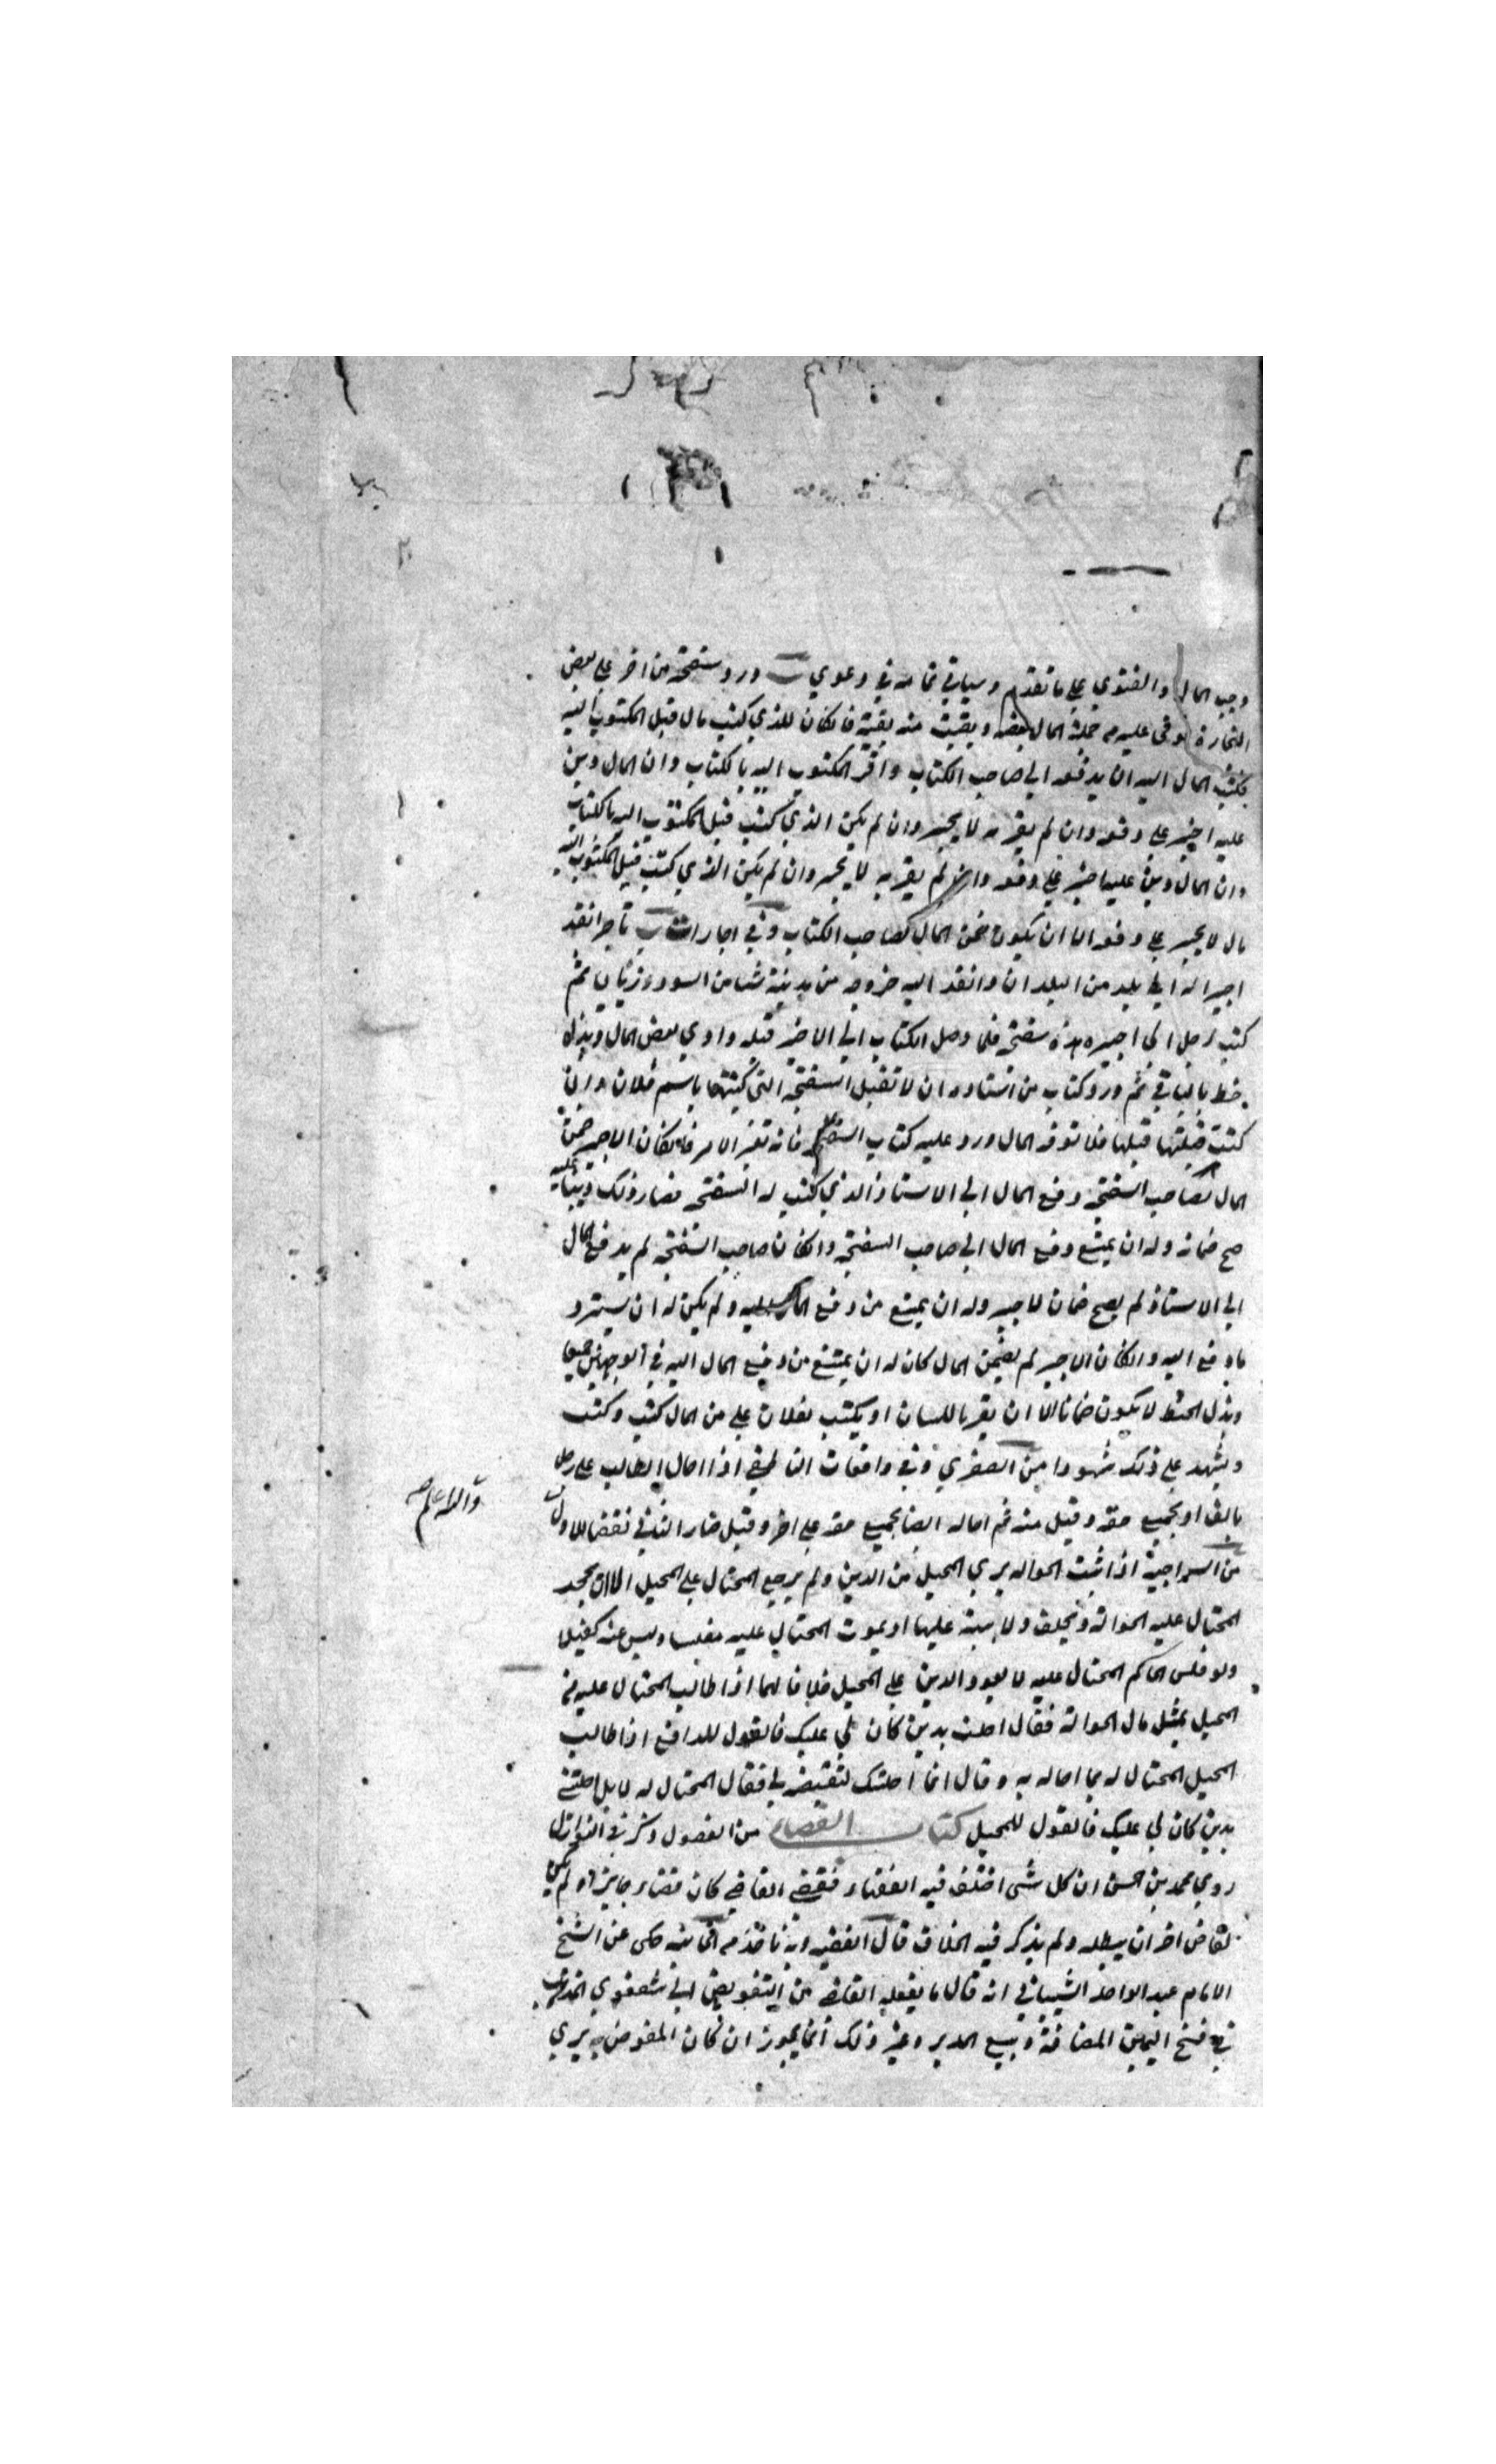 وجب المال والفتوي علي ما تقدم وسياتي تمامه في دعوي ورد سفتجة من اخر علي بعض
التجارة فوفى عليه من جملة المال بعضه وبقيت منه بقية فان كان للذي كتب مال قبل المكتوب اليه
فكتب المال اليه ان يدفعه الي صاحب الكتاب واقر المكتوب اليه بالكتاب وان المال دين
عليه اجبر علي دفعه وان لم يقر به لا يجبر وان لم يكن الذي كتب قبل المكتوب اليه بالكتاب
وان المال دين عليه اجبر علي دفعه وان لم يقر به لا يجبر وان لم يكن الذي كتب قبل المكتوب اليه
مال لا يجبر علي دفعه الا ان يكون ضمن المال لصاحب الكتاب وفي اجارات تاجر انفذ
اجيرا له الي بلد من البلدان وانفذ اليه من مدينة ثم
كتب رجل الي اجيره هذه سفتجة فلما وصل الكتاب الي الاجير قبله وادي بعض المال وبذل
خط بالباقي ثم ورد كتاب من استاده ان لا تقبل السفتجة التي كتبتها باسم فلان وان
كنت قبلتها فلا توفه المال ورد عليه كتاب فانه تغير الامر فان كان الاجير ضمن
المال لصاحب السفتجة ودفع المال الي الاستاذ الذي كتب له السفتجة فصار ذلك دينا عليه
صح ضمانه وله ان يمتنع دفع المال الي صاحب السفتجة وان كان صاحب السفتجة لم يدفع المال
الي الاستاذ لم يصح ضمان الاجير وله ان يمتنع من دفع المال اليه ولم يكن له ان يسترد
ما دفع اليه وان كان الاجير لم يضمن المال كان له ان يمتنع من دفع المال اليه في الوجهين جميعا
وبذل الخط لا يكون ضمانا الا ان يقر باللسان او يكتب لفلان علي من المال كتب وكتب
ويشهد علي ذلك شهودا من الصغري وفي واقعات الناطفي اذا احال الطالب علي رجل
بالف او بجميع حقه وقبل منه ثم احاله ايضا بجميع حقه علي اخر وقبل صار الثاني نقضا للاول
من السراجية اذا ثبت الحواله بري المحيل من الدين ولم يرجع المحتال علي المحيل الا ان يجحد
المحتال عليه الحوالة ويحلف ولا بينة عليها او يموت المحتال عليه مفلسا وليس عنه كفيلا
ولو فلس الحاكم المحتال عليه لا يعود الدين علي المحيل خلافا لهما اذا طالب المحتال عليه من
المحيل بمثل مال الحوالة فقال احلت بدين كان لي عليك فالقول للدافع اذا طالب
المحيل المحتال له بما احاله به وقال انما احلتك لتقبضه لي فقال المحتال له لا بل احلتني
بدين كان لي عليك فالقول للمحيل كتاب القضاء من الفصول وذكر في النوازل
روي محمد بن الحسن ان كل شي اختلف فيه الفقهاء فقضي القاضي كان قضاء جايزا ولم يكن
لقاض اخر ان يبطله ولم يذكر فيه الخلاف قال الفقيه وبه ناخذ من حكى عن الشيخ
الامام عبد الواحد الشيباني انه قال ما يفعله القاضي من التفويض الي شفعوي المذهب
في فسخ اليمين المضافة وبيع المدبر وغير ذلك انما يجوز ان كان المفوض يري
والله اعلم